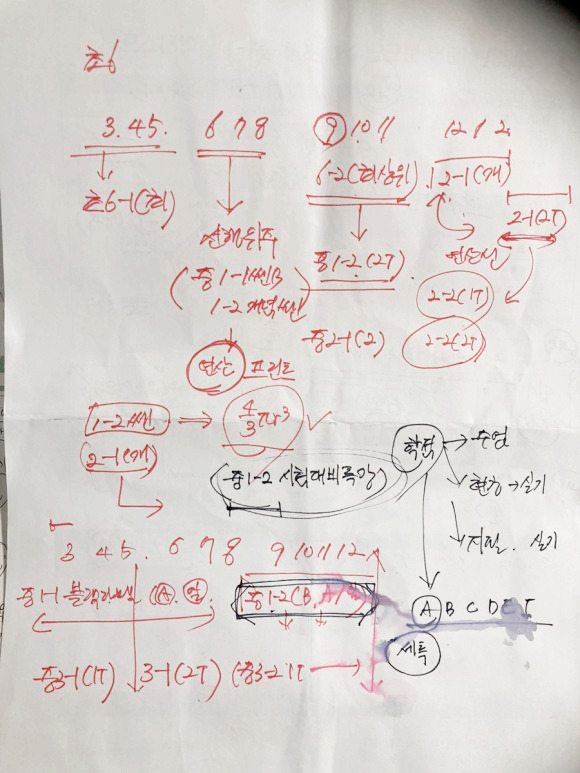 초6
3.4.5. 6 7 8 ⑨ 10 11 12 1 2.
초6-1(최) 6-2(최상위) 2-1(개)
2-1(2T)
선행위주
중1-2(2T)
(중1-1쎈B
1-2 개념+쎈)
2-2(1T)
중2-1(2) 2-2(2T
연산 프린트
1-2쎈 → 4/3πr³ ✓
2-1(개
학력 → 수업
(중1-2 시험대비특강)
현장→실기
지필. 실기
3 4 5. 6 7 8 9 10 11 12
중1-1 블랙라벨 (A. 일. 중1-2(B,
A B C D E
세특
중3-1(1T) 3-1(2T) (중3-2 1T